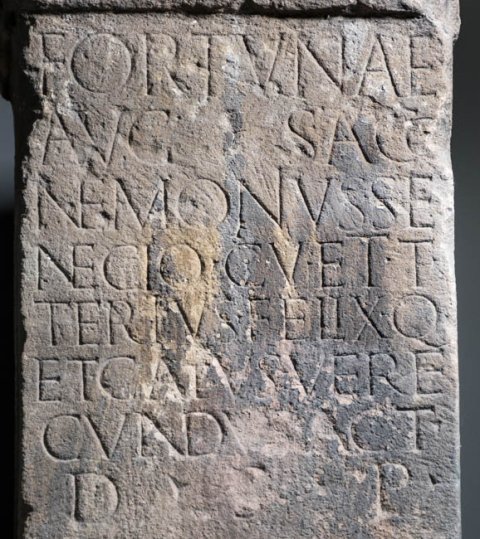 FORTVNAE
AVG SAC
NEMONVSSE
NECIO CVETT
TERTIVS FELIXQ
ETCATVS VERE
CVNDV ACT
D S P